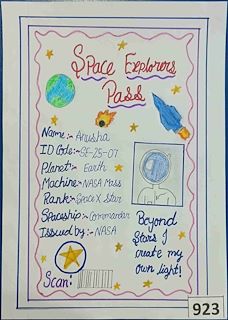 Space Explorers
Pass
Name:- Anusha
ID Code:- SE-25-07
Planet:- Earth
Machine:- NASA Mass
Rank:- Space X Star
Spaceship:- Commander
Issued by:- NASA
Beyond
Stars I
create my
own light!
Scan!
923